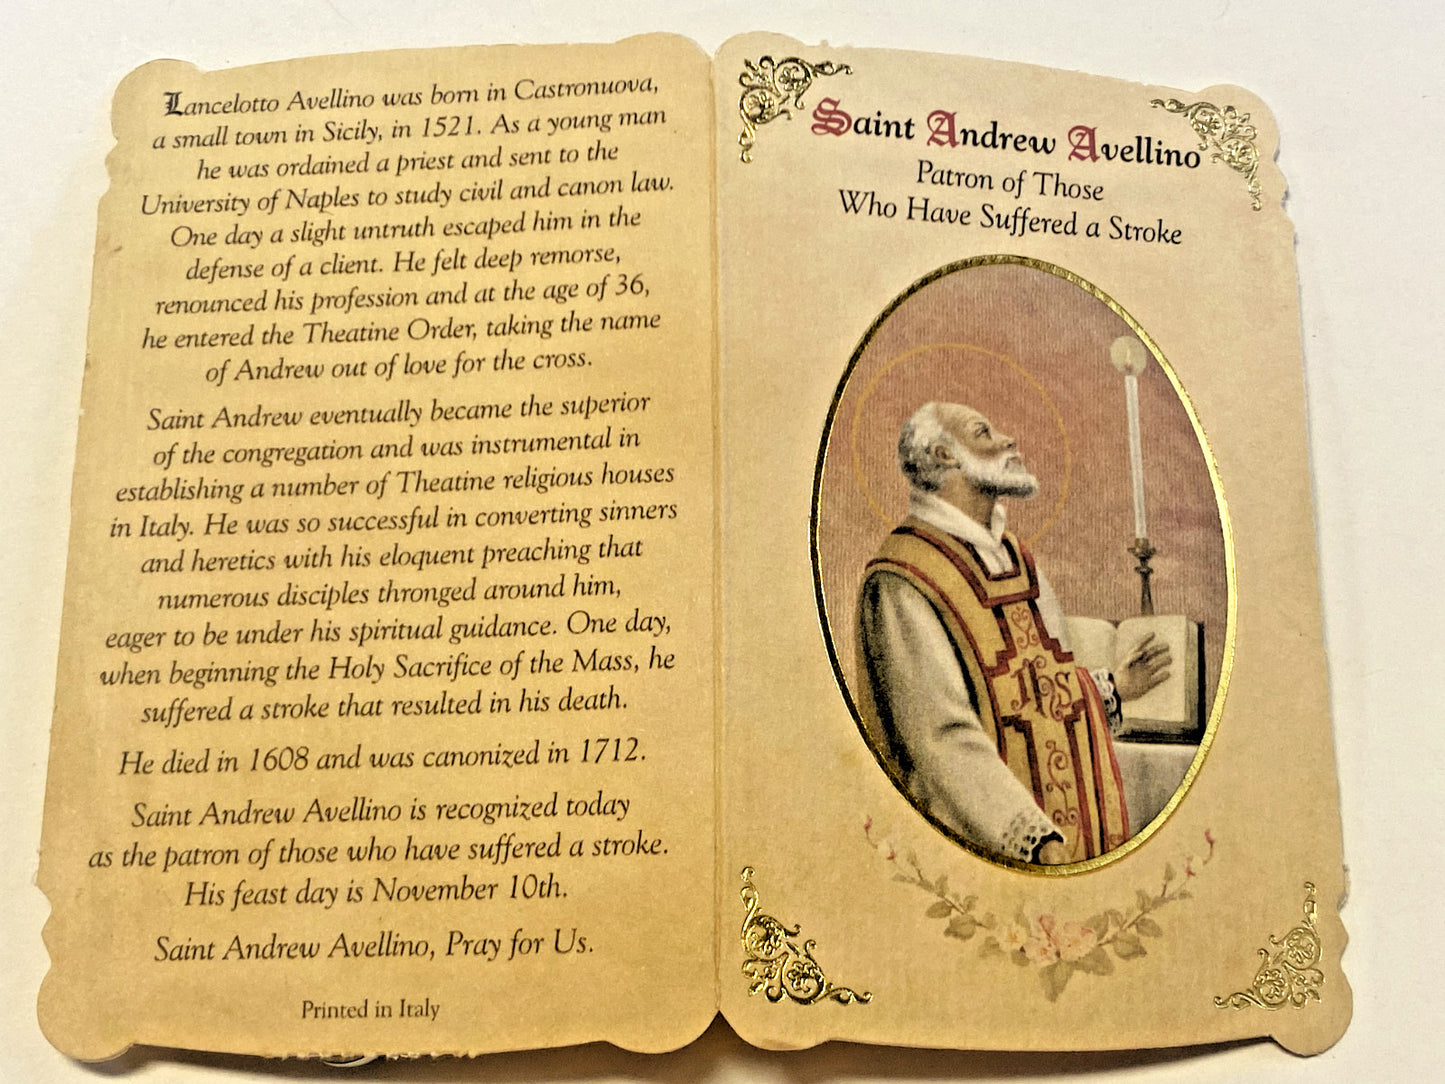 Lancelotto Avellino was born in Castronuova,
a small town in Sicily, in 1521. As a young man
he was ordained a priest and sent to the
University of Naples to study civil and canon law.
One day a slight untruth escaped him in the
defense of a client. He felt deep remorse,
renounced his profession and at the age of 36,
he entered the Theatine Order, taking the name
of Andrew out of love for the cross.
Saint Andrew eventually became the superior
of the congregation and was instrumental in
establishing a number of Theatine religious houses
in Italy. He was so successful in converting sinners
and heretics with his eloquent preaching that
numerous disciples thronged around him,
eager to be under his spiritual guidance. One day,
when beginning the Holy Sacrifice of the Mass, he
suffered a stroke that resulted in his death.
He died in 1608 and was canonized in 1712.
Saint Andrew Avellino is recognized today
as the patron of those who have suffered a stroke.
His feast day is November 10th.
Saint Andrew Avellino, Pray for Us.
Printed in Italy
Saint Andrew Avellino
Patron of Those
Who Have Suffered a Stroke
IHS